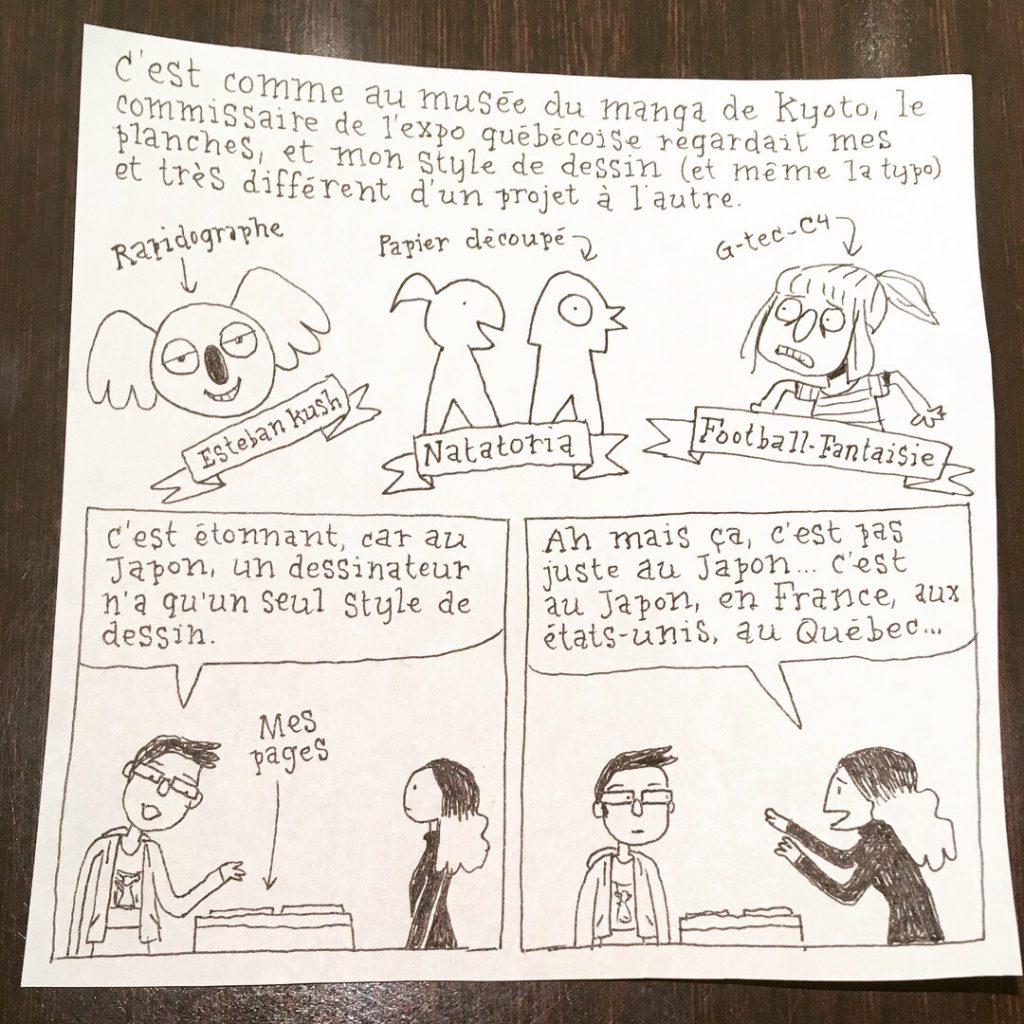 C'est comme au musée du manga de Kyoto, le
commissaire de l'expo québécoise regardait mes
planches, et mon style de dessin (et même la typo)
et très différent d'un projet à l'autre.
Rapidographe
Papier découpé
G-tec-C4
Esteban Kush
Natatoria
Football-Fantaisie
C'est étonnant, car au
Japon, un dessinateur
n'a qu'un seul style de
dessin.
Mes
pages
Ah mais ça, c'est pas
juste au Japon... c'est
au Japon, en France, aux
états-unis, au Québec...